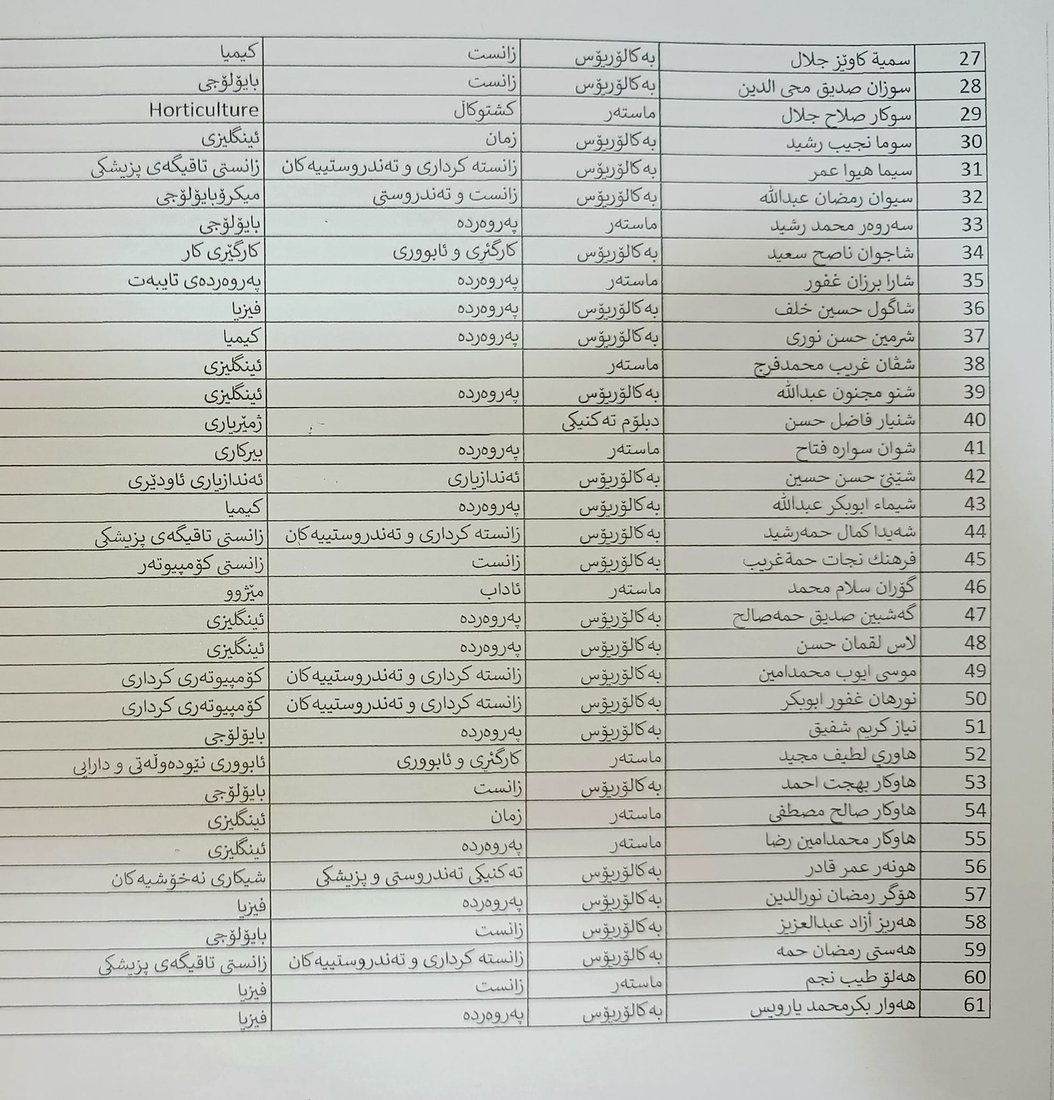 27 سمیة کاوێز جلال بەکالۆریۆس زانست کیمیا
28 سوزان صدیق محی الدین بەکالۆریۆس زانست بایۆلۆجی
29 سوکار صلاح جلال ماستەر کشتوکاڵ Horticulture
30 سوما نجیب رشید بەکالۆریۆس زمان ئینگلیزی
31 سیما هیوا عمر بەکالۆریۆس زانستە کرداری و تەندروستییەکان زانستی تاقیگەی پزیشکی
32 سیوان رمضان عبدالله بەکالۆریۆس زانست و تەندروستی میکرۆبایۆلۆجی
33 سەروەر محمد رشید ماستەر پەروەردە بایۆلۆجی
34 شاجوان ناصح سعید بەکالۆریۆس کارگێری و ئابووری کارگێری کار
35 شارا برزان غفور ماستەر پەروەردە پەروەردەی تایبەت
36 شاگول حسین خلف بەکالۆریۆس پەروەردە فیزیا
37 شرمین حسن نوری بەکالۆریۆس پەروەردە کیمیا
38 شڤان غریب محمدفرج ماستەر ئینگلیزی
39 شنو مجنون عبدالله بەکالۆریۆس پەروەردە ئینگلیزی
40 شنیار فاضل حسن دبلۆم تەکنیکی ژمێریاری
41 شوان سوارە فتاح ماستەر پەروەردە بیرکاری
42 شێنێ حسن حسین بەکالۆریۆس ئەندازیاری ئەندازیاری ئاودێری
43 شیماء ابوبکر عبدالله بەکالۆریۆس پەروەردە کیمیا
44 شەیدا کمال حمەرشید بەکالۆریۆس زانستە کرداری و تەندروستییەکان زانستی تاقیگەی پزیشکی
45 فرهنك نجات حمةغریب بەکالۆریۆس زانست زانستی کۆمپیوتەر
46 گۆران سلام محمد ماستەر ئاداب مێژوو
47 گەشبین صدیق حمەصالح بەکالۆریۆس پەروەردە ئینگلیزی
48 لاس لقمان حسن بەکالۆریۆس پەروەردە ئینگلیزی
49 موسی ایوب محمدامین بەکالۆریۆس زانستە کرداری و تەندروستییەکان کۆمپیوتەری کرداری
50 نورهان غفور ابوبکر بەکالۆریۆس زانستە کرداری و تەندروستییەکان کۆمپیوتەری کرداری
51 نیاز کریم شفیق بەکالۆریۆس پەروەردە بایۆلۆجی
52 هاوري لطیف مجید ماستەر کارگێری و ئابووری ئابووری نێودەوڵەتی و دارایی
53 هاوکار بهجت احمد بەکالۆریۆس زانست بایۆلۆجی
54 هاوکار صالح مصطفی ماستەر زمان ئینگلیزی
55 هاوکار محمدامین رضا ماستەر پەروەردە ئینگلیزی
56 هونەر عمر قادر بەکالۆریۆس تەکنیکی تەندروستی و پزیشکی شیکاری نەخۆشیەکان
57 هۆگر رمضان نورالدین بەکالۆریۆس پەروەردە فیزیا
58 هەریز أزاد عبدالعزیز بەکالۆریۆس زانست بایۆلۆجی
59 هەستی رمضان حمە بەکالۆریۆس زانستە کرداری و تەندروستییەکان زانستی تاقیگەی پزیشکی
60 هەڵۆ طیب نجم ماستەر زانست فیزیا
61 هەوار بکرمحمد یارویس بەکالۆریۆس پەروەردە فیزیا